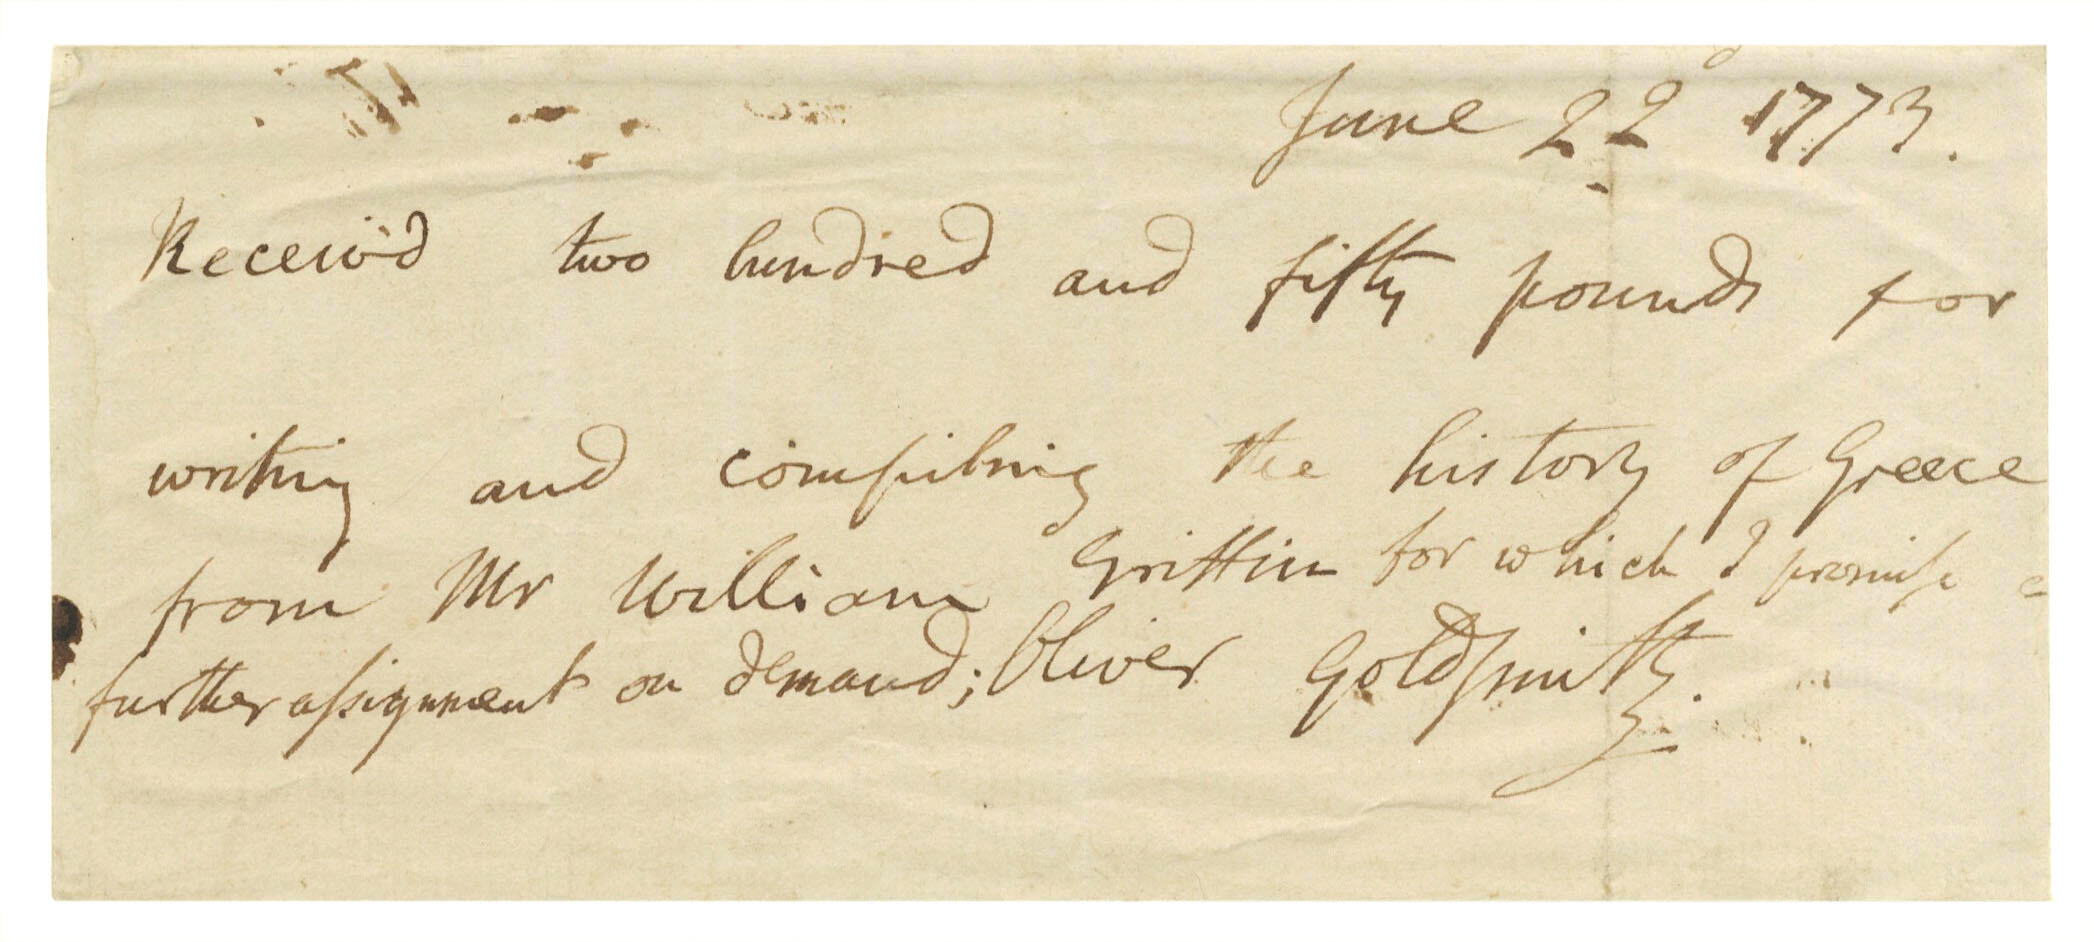 June 22d 1773.
Receiv'd two hundred and fifty pounds for
writing and compiling the history of Greece
from Mr William Griffin for which I promise a
further assignment on demand; Oliver Goldsmith.